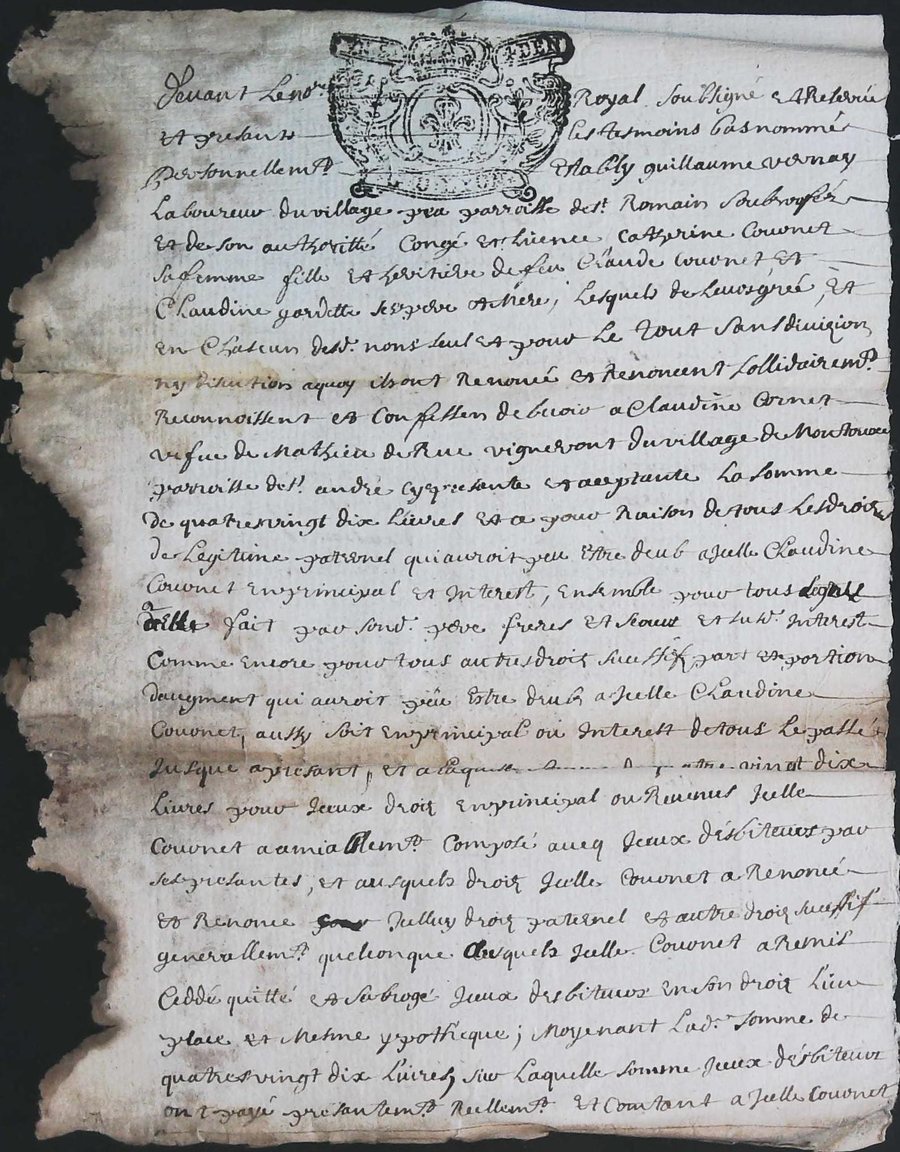 devant Le no.re Royal soubsigné et Reservé
et presants Les tesmoins bas nommés
Personnellem.t Estably guillaume vernay
Laboureur du village parroisse de s.t Romain
et de son authorité Congé et Licence, Catherine Couonet
sa femme fille et heritiere de feu Claude Couonet, et
Claudine gardette ses pere et Mere, Lesquels de Leur gré, et
en Chascun desd. noms seul et pour Le Tout sans division
ny discution a quoy ils ont Renoncé et Renoncent sollidairem.t
Reconnoissent et Confessen debvoir a Claudine Cornet
vefue de Mathieu de Rue vigneront du village de
parroisse de s.t andré cy presente et acceptante La somme
de quatre vingt dix Livres et a pour Raison de tous Les droits
de Legitime paternel qui auroit peu Estre deub a Jcelle Claudine
Couonet en principal et Interest, Ensemble pour tous
fait par sond. pere freres et et Interest
Comme encore pour tous autres droitz successifz part et portion
daugment qui auroit peu Estre deub a Jcelle Claudine
Couonet, aussy soit en principal ou Interest de tous Le passé
Jusque a presant, et a Laquelle vingt dix
Livres pour Jceux droitz en principal ou Revenus Jcelle
Couonet a amiablem.t Composé avecq Jceux desbiteurs par
ses presantes, et ausquels droitz Jcelle Couonet a Renoncé
et Renonce Jcelluy droitz paternel et autre droitz successif
generallem.t quelconque desquels Jcelle Couonet a Remis
Ceddé quitté et subrogé Jceux desbiteurs en son droitz Lieu
place et Mesme ypotheque; Moyenant Lad. somme de
quatre vingt dix Livres, sur Laquelle somme Jceux desbiteurs
ont payé presantem.t Reellem.t et Contant a Jcelle Couonet